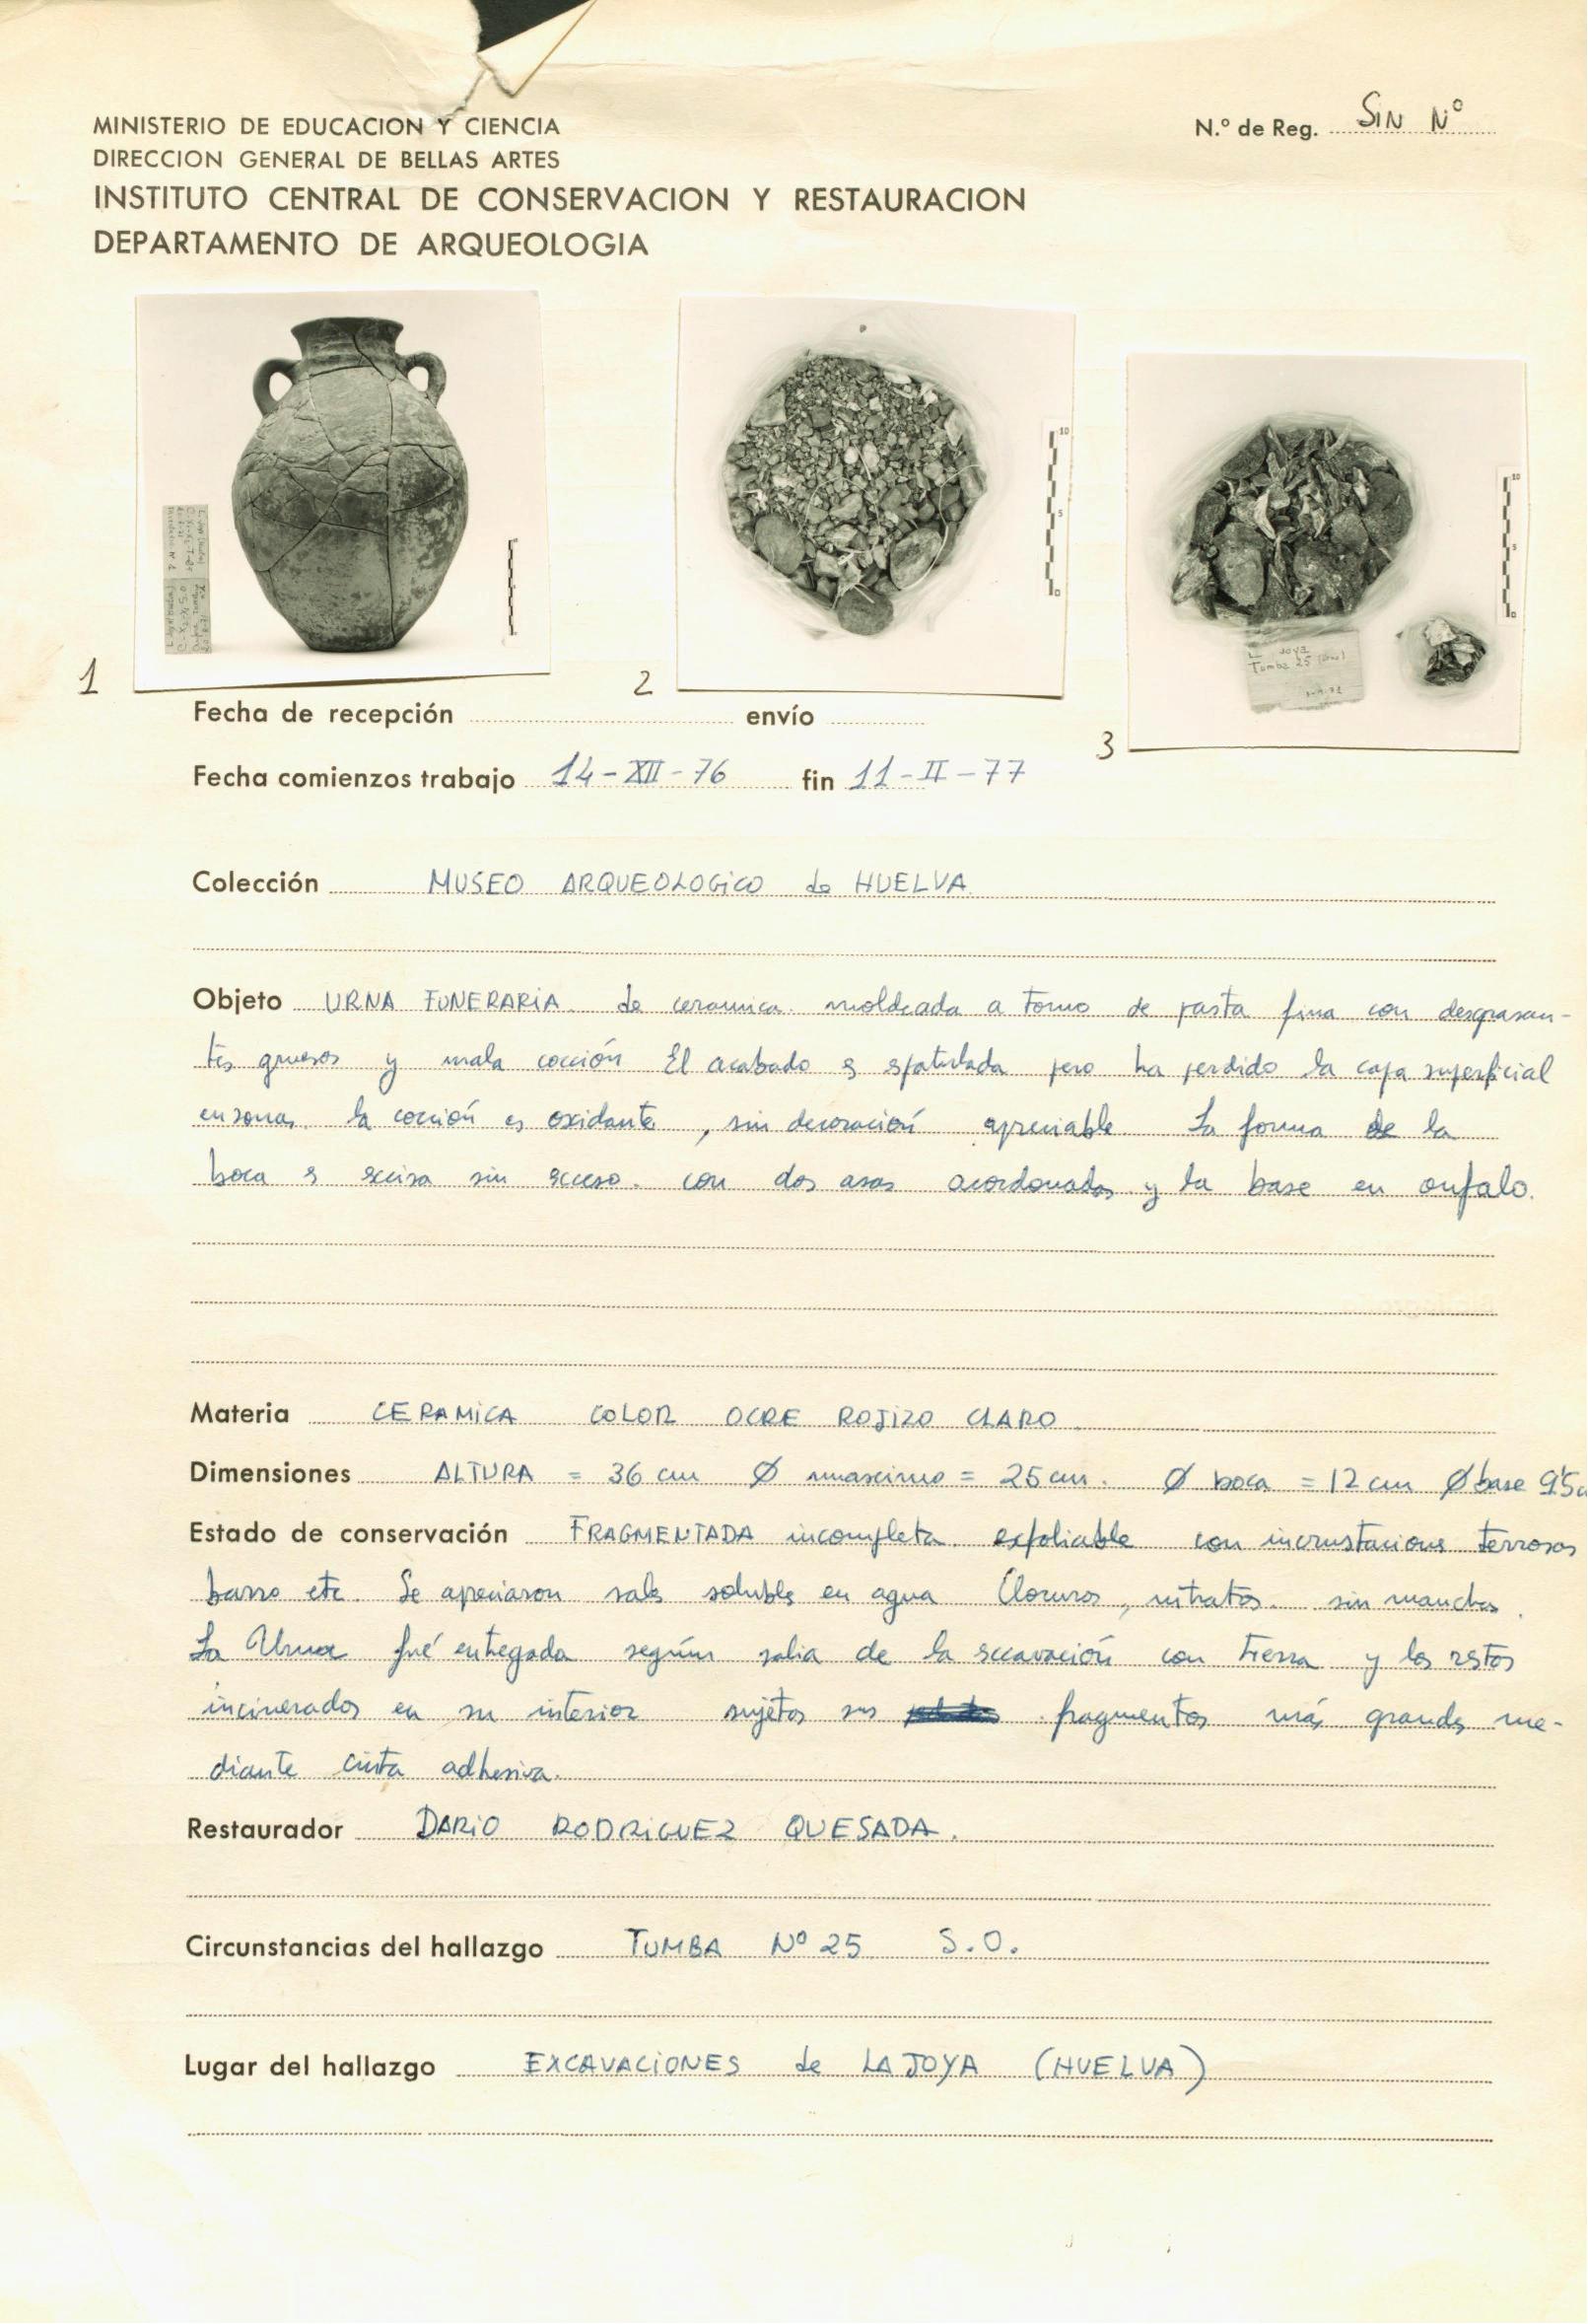 MINISTERIO DE EDUCACION Y CIENCIA
DIRECCION GENERAL DE BELLAS ARTES
INSTITUTO CENTRAL DE CONSERVACION Y RESTAURACION
DEPARTAMENTO DE ARQUEOLOGIA
N.º de Reg. SIN Nº
1
2
L JOYA
Tumba 25
3
Fecha de recepción envío
Fecha comienzos trabajo 14-XII-76 fin 11-II-77
Colección MUSEO ARQUEOLOGICO de HUELVA
Objeto URNA FUNERARIA de ceramica moldeada a torno de pasta fina con desgrasan-
tes gruesos y mala cocción El acabado es espatulada pero ha perdido la capa superficial
en zonas. la cocción es oxidante, sin decoración apreciable La forma de la
boca es excisa sin exceso. con dos asas acordonadas y la base en onfalo.
Materia CERAMICA COLOR OCRE ROJIZO CLARO
Dimensiones ALTURA = 36 cm Ø maximo = 25 cm. Ø boca = 12 cm Ø base 9'5
Estado de conservación FRAGMENTADA incompleta. exfoliable con incrustaciones terrosas
barro etc. Se apreciaron sales solubles en agua Cloruros, nitratos. sin manchas.
La Urna fué entregada según salia de la excavación con tierra y los restos
incinerados en su interior sujetos sus fragmentos más grandes me-
diante cinta adhesiva.
Restaurador DARIO RODRIGUEZ QUESADA.
Circunstancias del hallazgo TUMBA Nº 25 S.O.
Lugar del hallazgo EXCAVACIONES de LA JOYA (HUELVA)